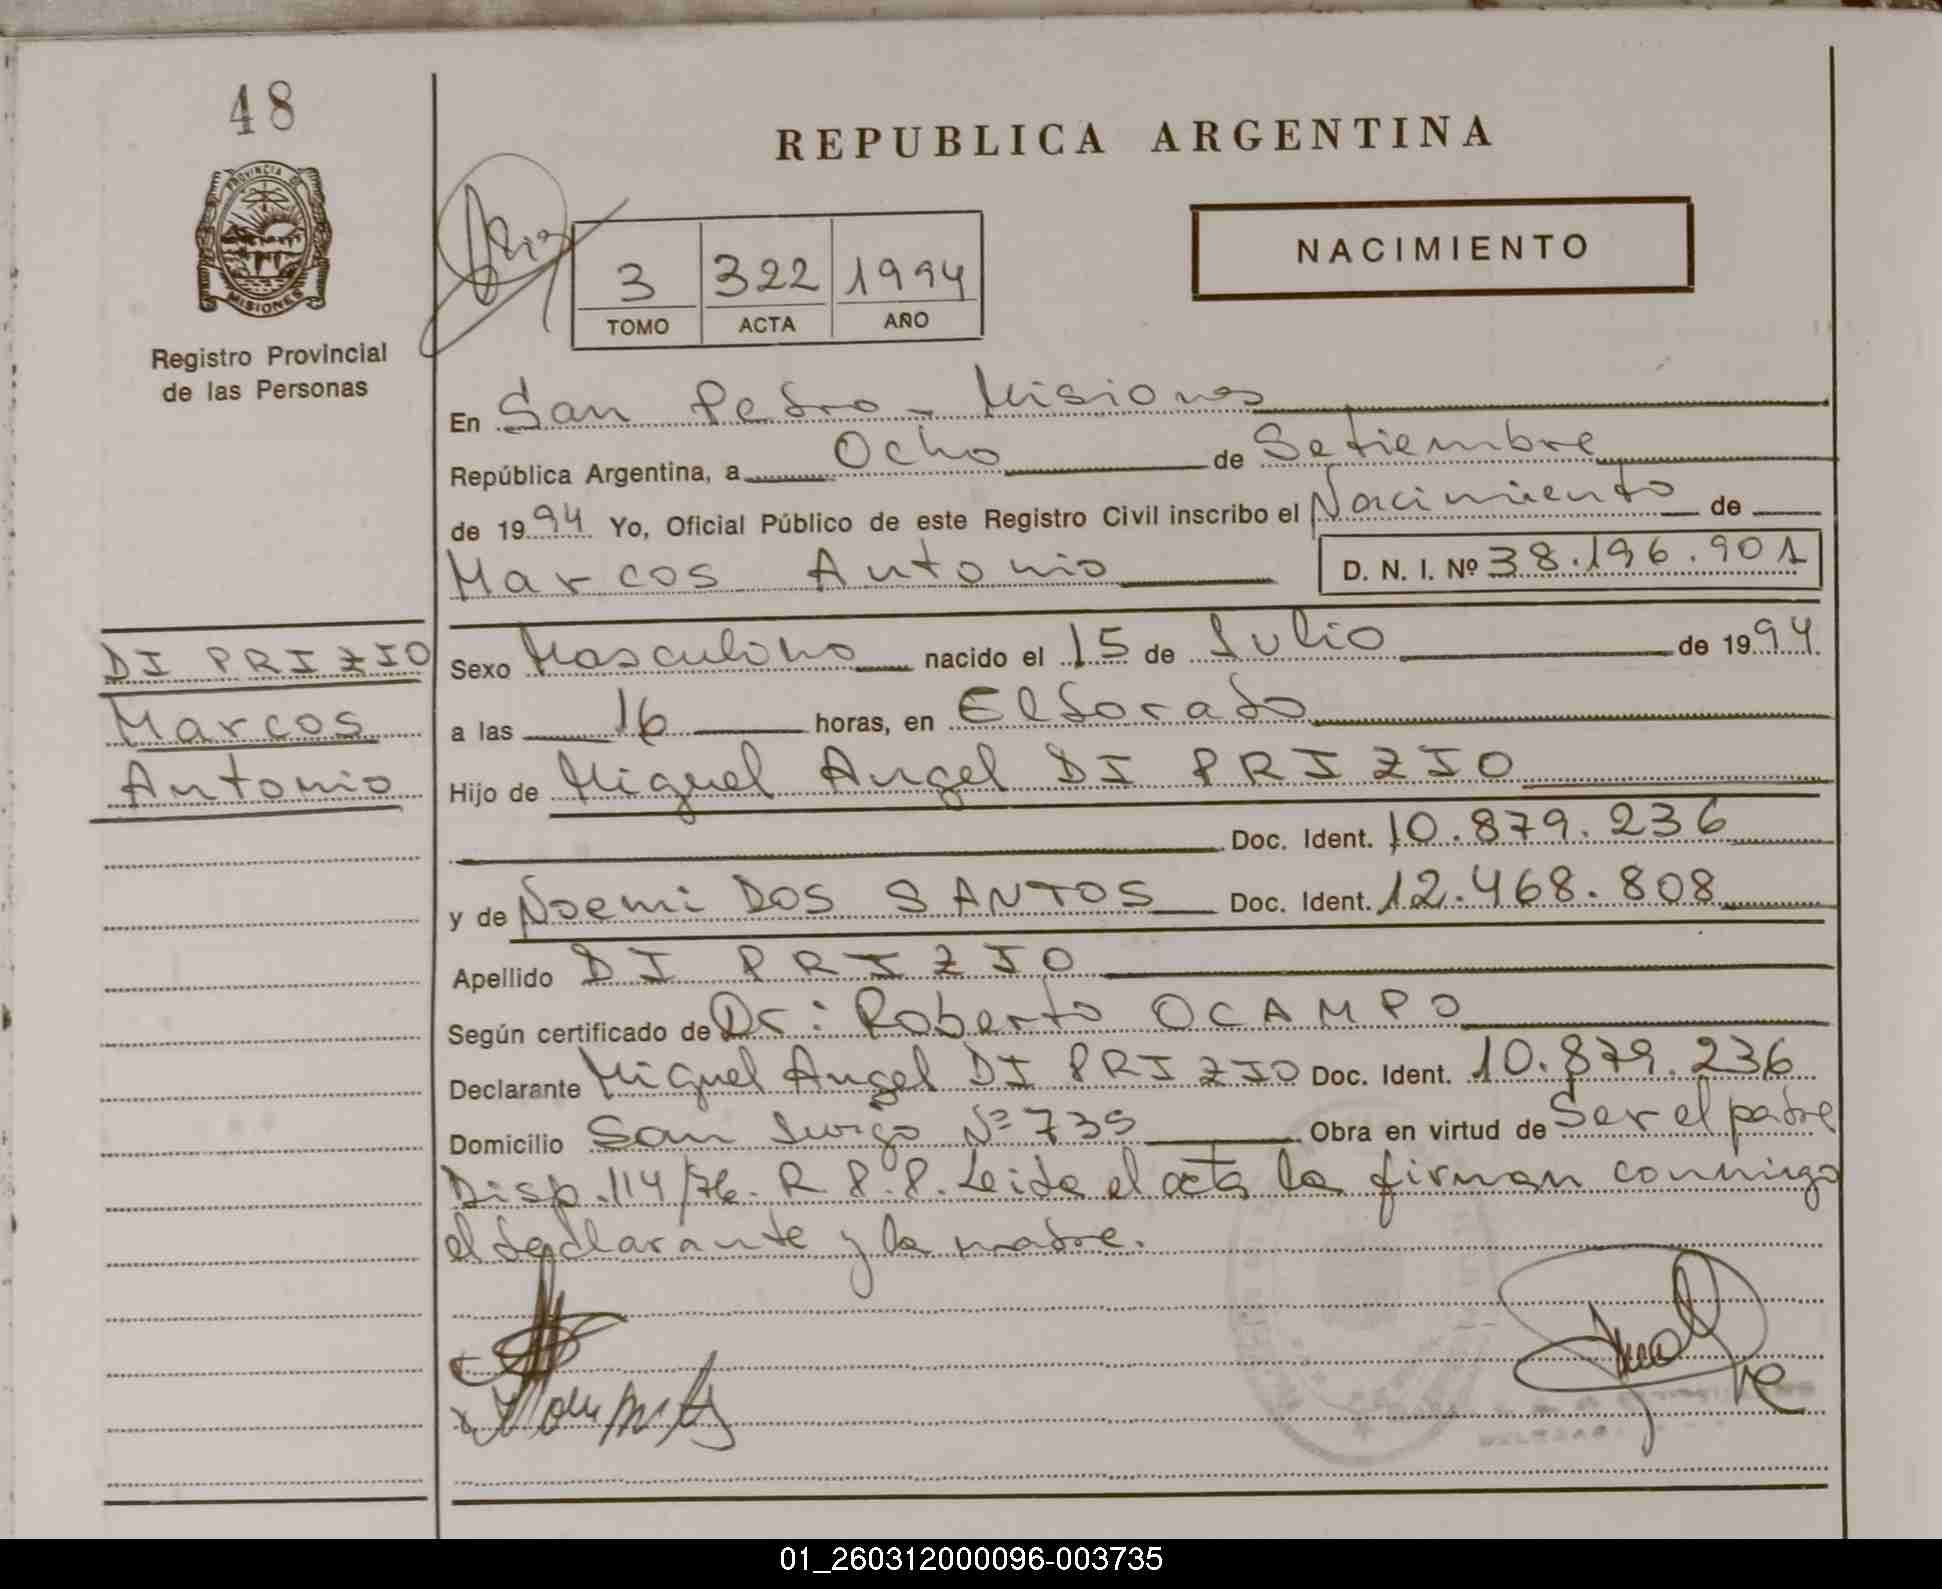 48
PROVINCIA DE
MISIONES
Registro Provincial
de las Personas
REPUBLICA ARGENTINA
NACIMIENTO
3 322 1994
TOMO ACTA AÑO
En San Pedro - Misiones
República Argentina, a Ocho de Setiembre
de 1994 Yo, Oficial Público de este Registro Civil inscribo el Nacimiento de
Marcos Antonio D. N. I. Nº 38.196.901
DI PRIZIO
Marcos
Antonio
Sexo Masculino nacido el 15 de Julio de 1994
a las 16 horas, en Eldorado
Hijo de Miguel Angel DI PRIZIO
Doc. Ident. 10.879.236
y de Noemi DOS SANTOS Doc. Ident. 12.468.808
Apellido DI PRIZIO
Según certificado de Dr: Roberto OCAMPO
Declarante Miguel Angel DI PRIZIO Doc. Ident. 10.879.236
Domicilio San Nº 735 Obra en virtud de Ser el padre
Disp. 114/76. R.P.P. Leida el acta la firman conmigo
el declarante y la madre.
01_260312000096-003735